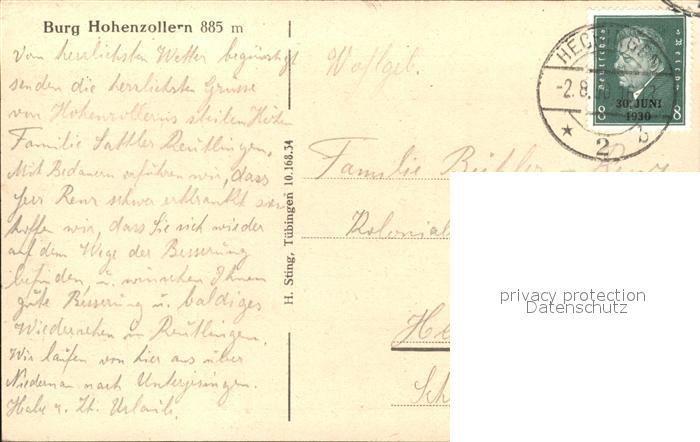 Burg Hohenzollern 885 m
Vom herzlichsten Wetter begünstigt
senden die herzlichsten Grüsse
von Hohenzollerns steilen Höhen
Familie Sattler Reutlingen.
Mit Bedauern erfuhren wir, dass
Renz schwer erkrankt
hoffen wir, dass Sie sich wieder
auf dem Wege der Besserung
befinden, u. wünschen Ihnen
gute Besserung u. baldiges
Wiedersehen in Reutlingen.
Wir laufen von hier aus über
nach Unterjesingen.
Habe z. Zt. Urlaub.
H. Sting, Tübingen 10.168.34
Wohlgeb.
Familie
Kolonial
He
Sch
HECHINGEN
-2.8.
2
Deutsches Reich
30. JUNI
1930
8 8
privacy protection
Datenschutz